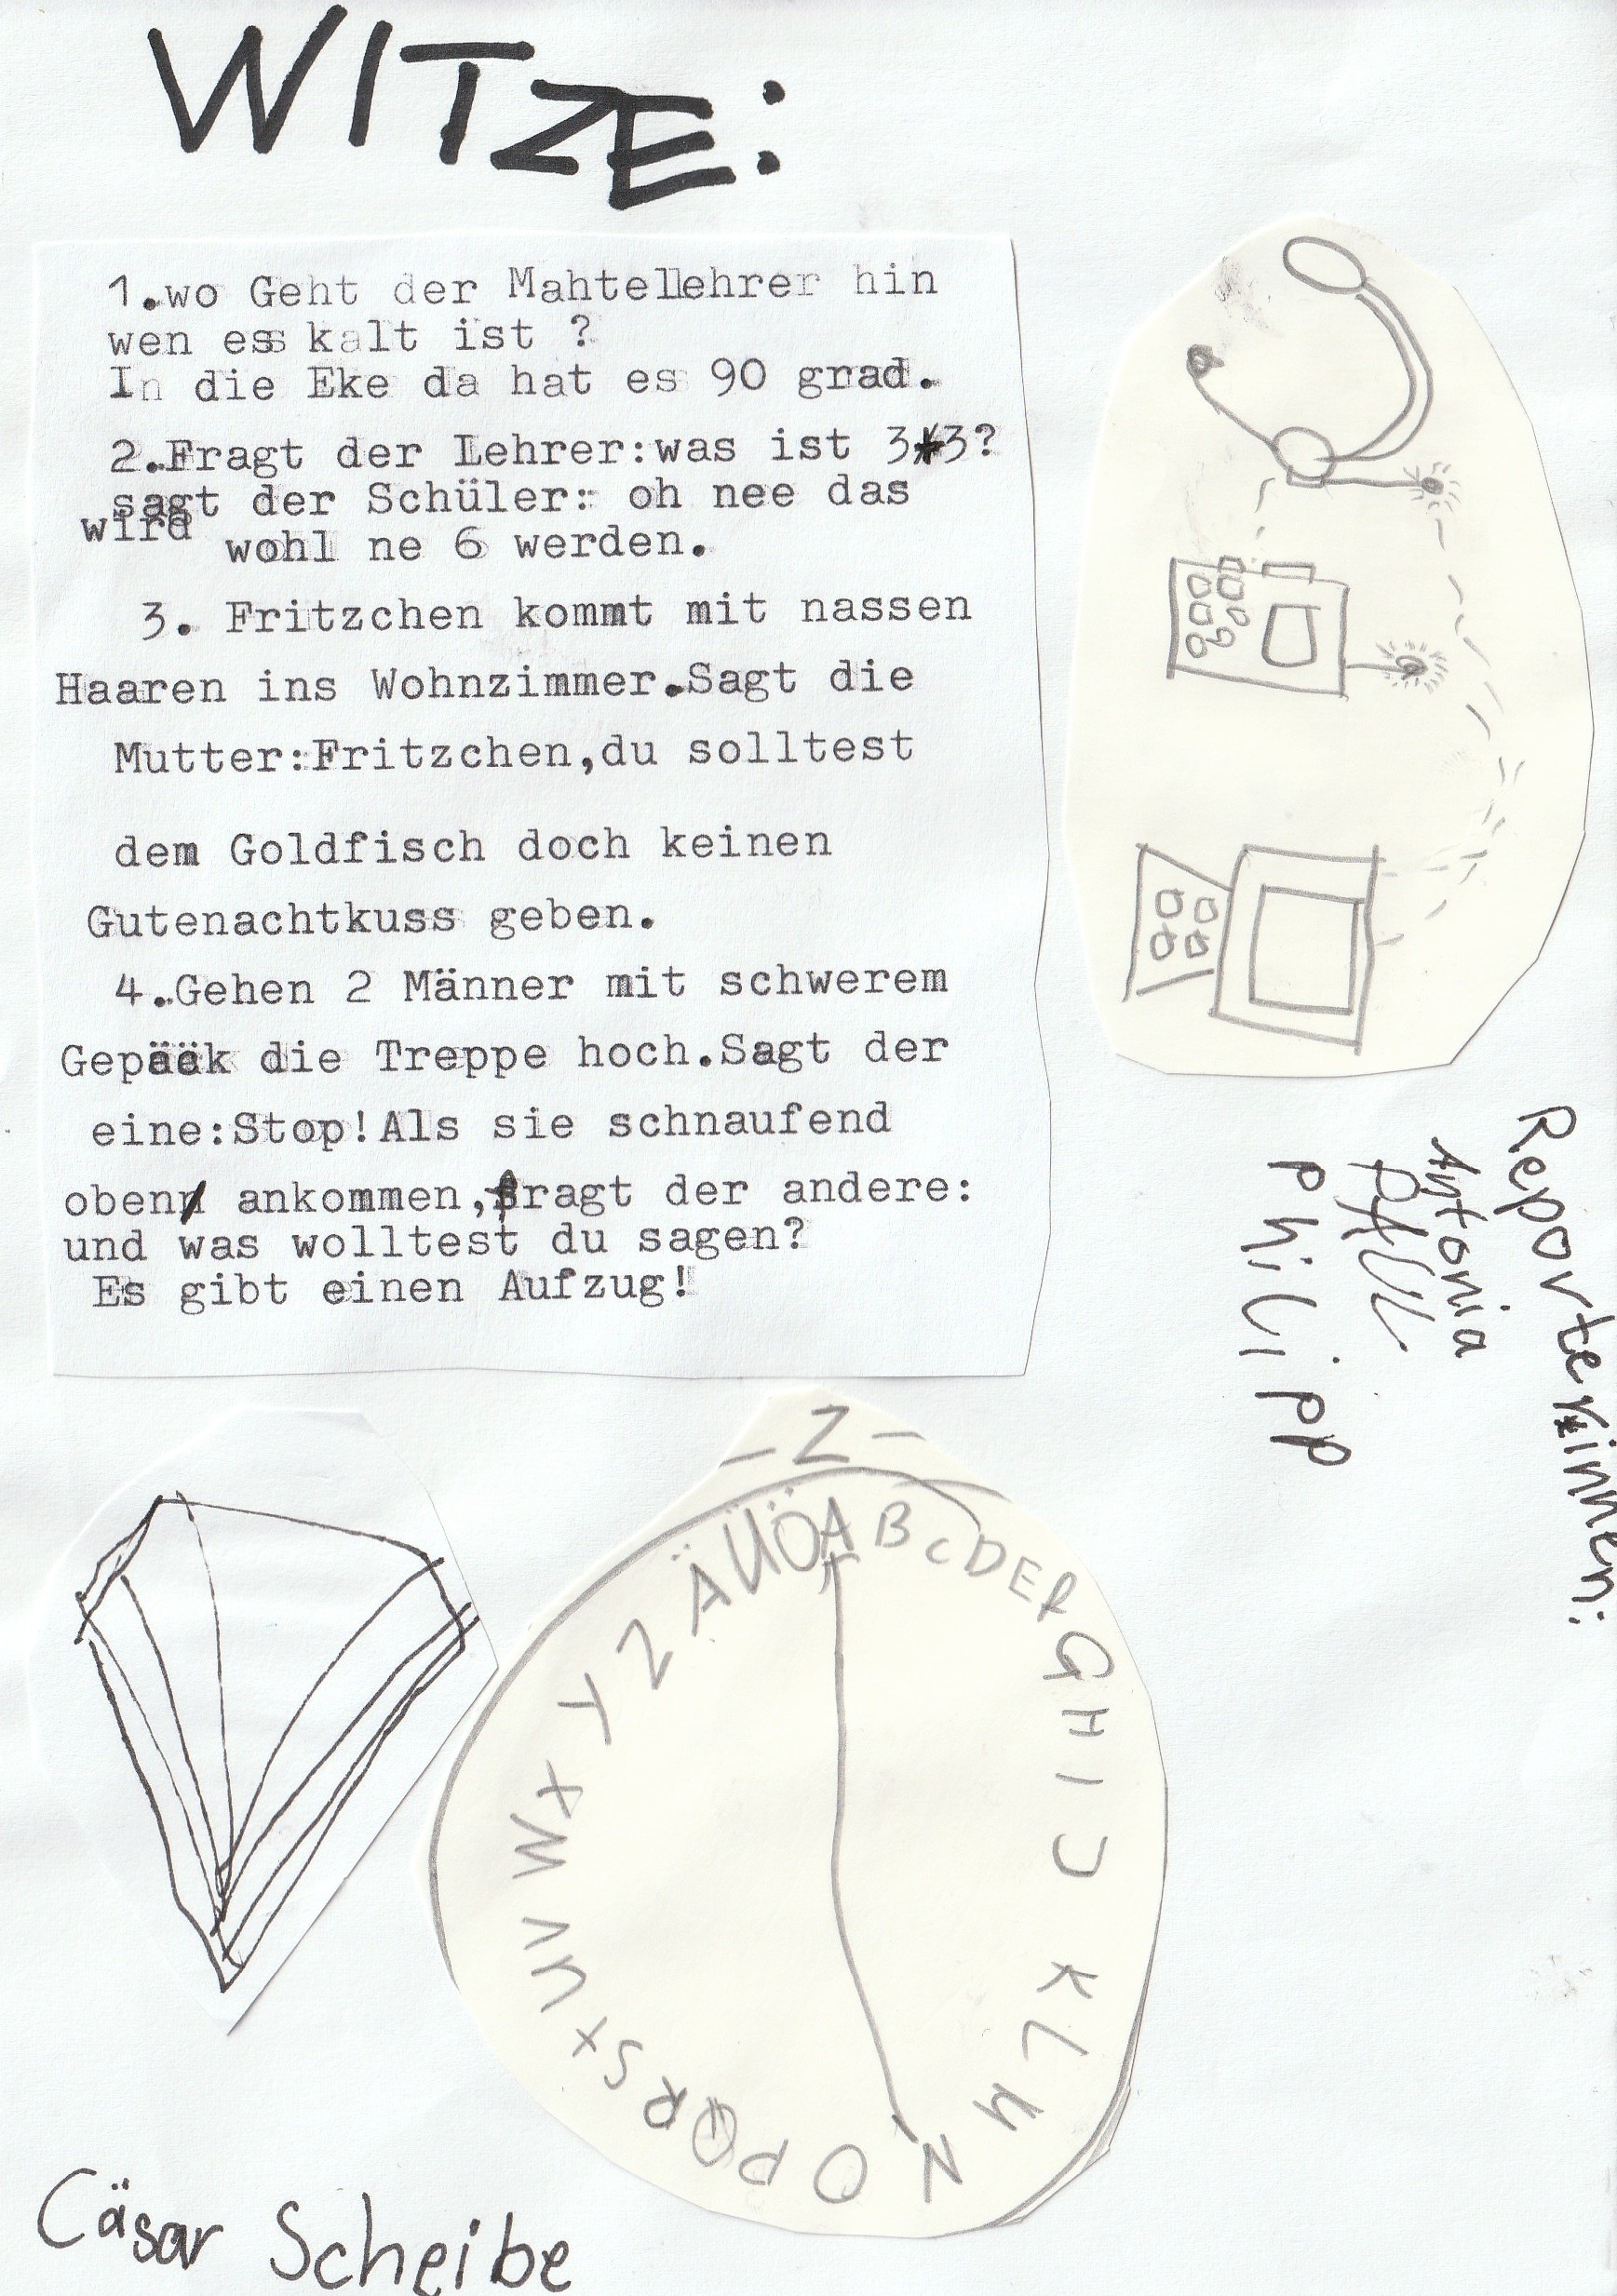 WITZE:
1.wo Geht der Mahtellehrer hin
wen ess kalt ist ?
In die Eke da hat es 90 grad.
2.Fragt der Lehrer:was ist 3+3?
sagt der Schüler: oh nee das
wird wohl ne 6 werden.
3. Fritzchen kommt mit nassen
Haaren ins Wohnzimmer.Sagt die
Mutter:Fritzchen,du solltest
dem Goldfisch doch keinen
Gutenachtkuss geben.
4.Gehen 2 Männer mit schwerem
Gepääk die Treppe hoch.Sagt der
eine:Stop!Als sie schnaufend
oben ankommen,fragt der andere:
und was wolltest du sagen?
Es gibt einen Aufzug!
Reporterinnen:
Antonia
PAUL
PhiLipp
- Z -
A B C D E F G H I J K L M N O P Q R S X U V W X Y Z Ä Ü Ö
Cäsar Scheibe